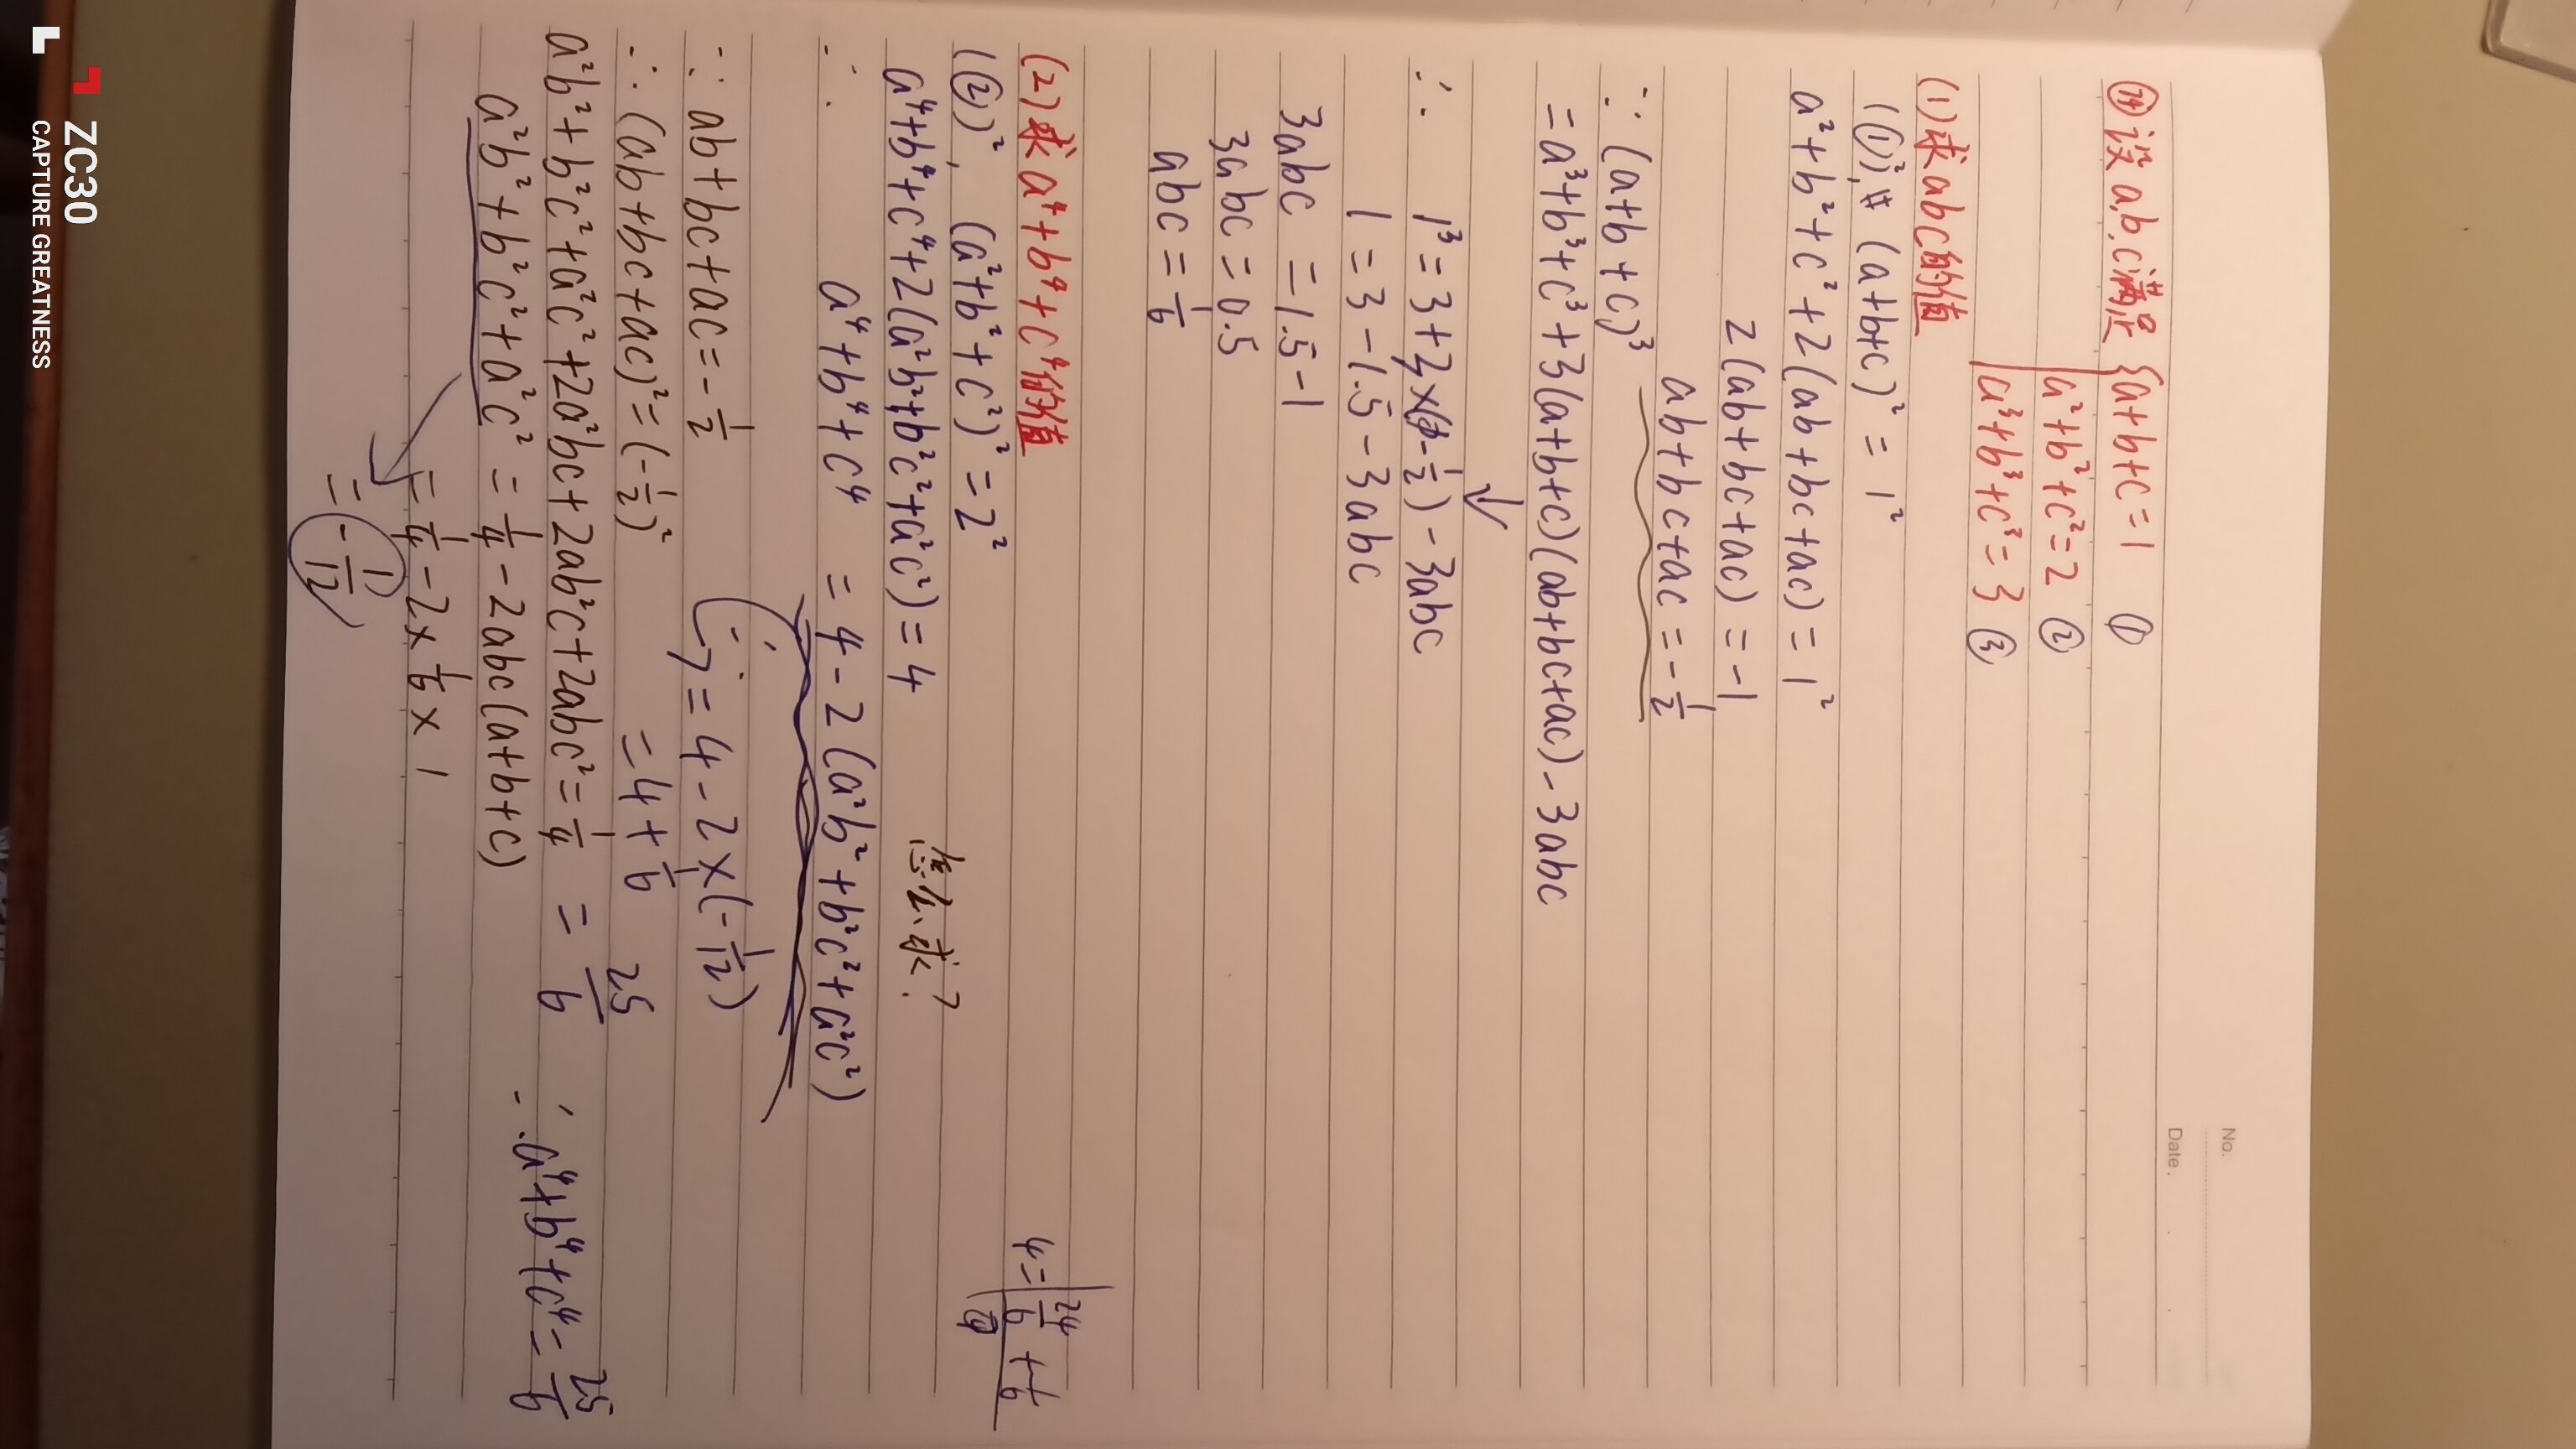 No.
Date.
⑭ 设 a,b,c满足 {a+b+c=1 ①
a²+b²+c²=2 ②
a³+b³+c³=3 ③
(1)求abc的值
(①)², (a+b+c)²=1²
a²+b²+c²+2(ab+bc+ac)=1²
2(ab+bc+ac)=-1
ab+bc+ac=-1/2
∵ (a+b+c)³
=a³+b³+c³+3(a+b+c)(ab+bc+ac)-3abc
↓
∴ 1³=3+3×(-1/2)-3abc
1=3-1.5-3abc
3abc=1.5-1
3abc=0.5
abc=1/6
(2)求a⁴+b⁴+c⁴的值
4=24/6+1/6
(②)², (a²+b²+c²)²=2²
a⁴+b⁴+c⁴+2(a²b²+b²c²+a²c²)=4
怎么求?
∴ a⁴+b⁴+c⁴ =4-2(a²b²+b²c²+a²c²)
∵ ab+bc+ac=-1/2
∴ =4-2×(-1/12)
∴ (ab+bc+ac)²=(-1/2)²
=4+1/6
a²b²+b²c²+a²c²+2a²bc+2ab²c+2abc²=1/4
=25/6
a²b²+b²c²+a²c²=1/4-2abc(a+b+c)
∴a⁴+b⁴+c⁴=25/6
=1/4-2×1/6×1
=-1/12
ZC30
CAPTURE GREATNESS